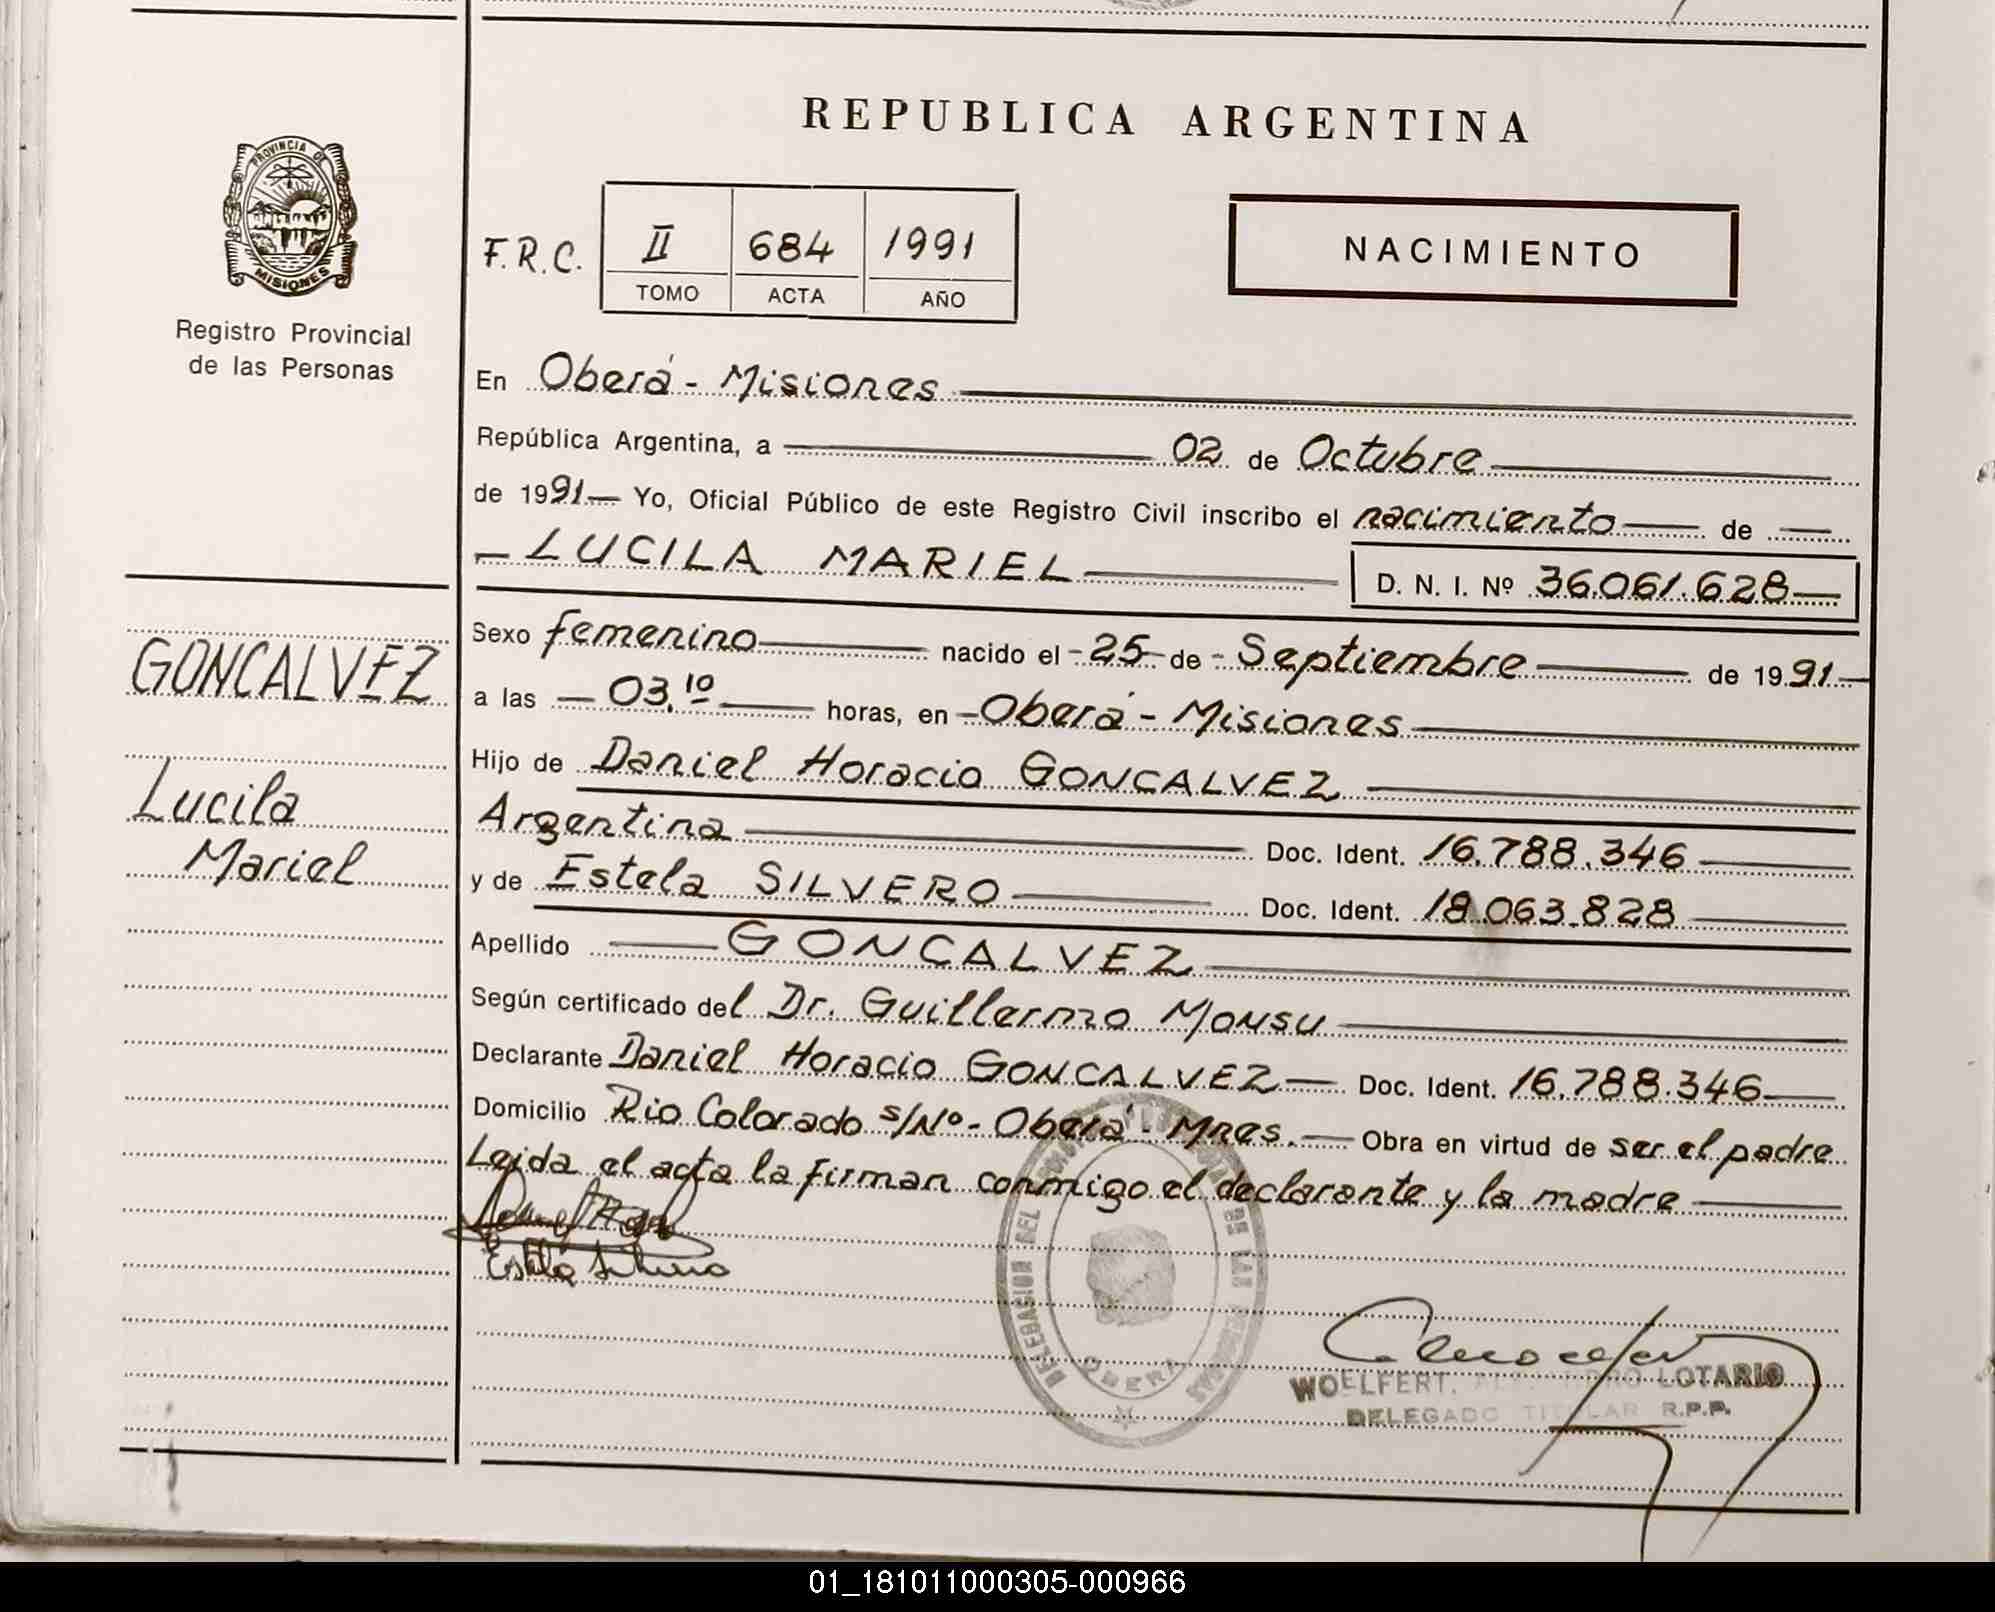 REPUBLICA ARGENTINA
PROVINCIA DE
MISIONES
Registro Provincial
de las Personas
F.R.C. II 684 1991
TOMO ACTA AÑO
NACIMIENTO
En Oberá - Misiones
República Argentina, a 02 de Octubre
de 1991 Yo, Oficial Público de este Registro Civil inscribo el nacimiento de
LUCILA MARIEL D. N. I. Nº 36.061.628
GONCALVEZ
Lucila
Mariel
Sexo femenino nacido el 25 de Septiembre de 1991
a las 03,10 horas, en Oberá - Misiones
Hijo de Daniel Horacio GONCALVEZ
Argentina Doc. Ident. 16.788.346
y de Estela SILVERO Doc. Ident. 18.063.828
Apellido GONCALVEZ
Según certificado del Dr. Guillermo MONSU
Declarante Daniel Horacio GONCALVEZ Doc. Ident. 16.788.346
Domicilio Rio Colorado s/Nº - Oberá - Mnes. Obra en virtud de ser el padre
Leida el acta la firman conmigo el declarante y la madre
Estela Silvero
DELEGACION DEL REGISTRO DE LAS PERSONAS
OBERA
WOELFERT, LOTARIO
DELEGADO TITULAR R.P.P.
01_181011000305-000966